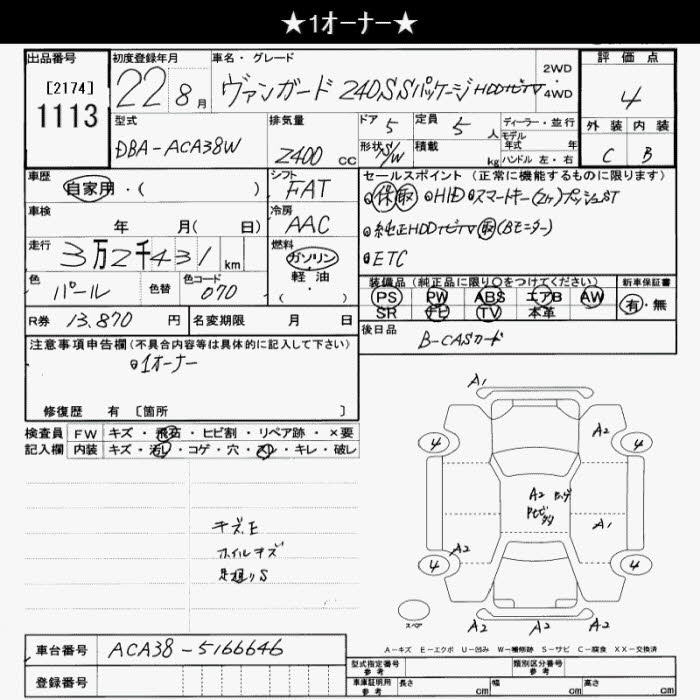 ★1オーナー★
出品番号 初度登録年月 車名・グレード 評価点
[2174] 22 8月 ヴァンガード 240S Sパッケージ HDDナビTV 2WD・4WD 4
1113
型式 排気量 ドア 5 定員 5人 ディーラー・並行 外装 内装
DBA-ACA38W 2400CC 形状 S/W 積載 kg モデル年式 年 C B
ハンドル 左・右
車歴 シフト セールスポイント(正常に機能するものに限ります)
自家用・( ) FAT 保取 HID スマートキー(2ヶ)プッシュST
車検 冷房
年 月(日) AAC 純正HDDナビTV 取(Bモニター)
走行 燃料
3万2千431km ガソリン ETC
軽・油
色 色替 色コード ・
パール 070 ( )
装備品(純正品に限り○をつけてください) 新車保証書
PS PW ABS エアB AW 有・無
SR ナビ TV 本革
R券 13.870円 名変期限 月 日
後日品 B-CASカード
注意事項申告欄(不具合内容等は具体的に記入して下さい)
1オーナー
修復歴 有 [箇所 ]
検査員 FW キズ・飛石・ヒビ割・リペア跡・×要
記入欄 内装 キズ・汚レ・コゲ・穴・スレ・キレ・破レ
A1
4 A2 4
A2
A2 A1
4 4
スペア A2 A2 A2
キズ.E
ホイルキズ
足廻りS
A-キズ E-エクボ U-凹み W-補修跡 S-サビ C-腐食 XX-交換済
車台番号 ACA38-5166646
登録番号
型式指定番号 参考 類別区分番号 参考
車庫証明用 参考 長さ cm 幅 cm 高さ cm